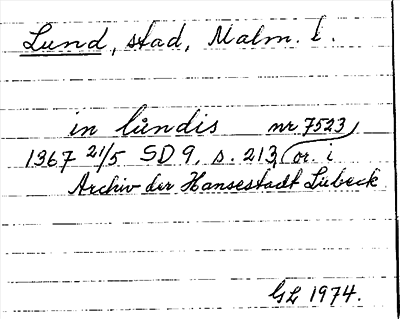 Lund, stad, Malm. l.
in lundis nr 7523
1367 21/5 SD 9, s. 213 (or. i
Archiv der Hansestadt Lübeck
GL 1974.